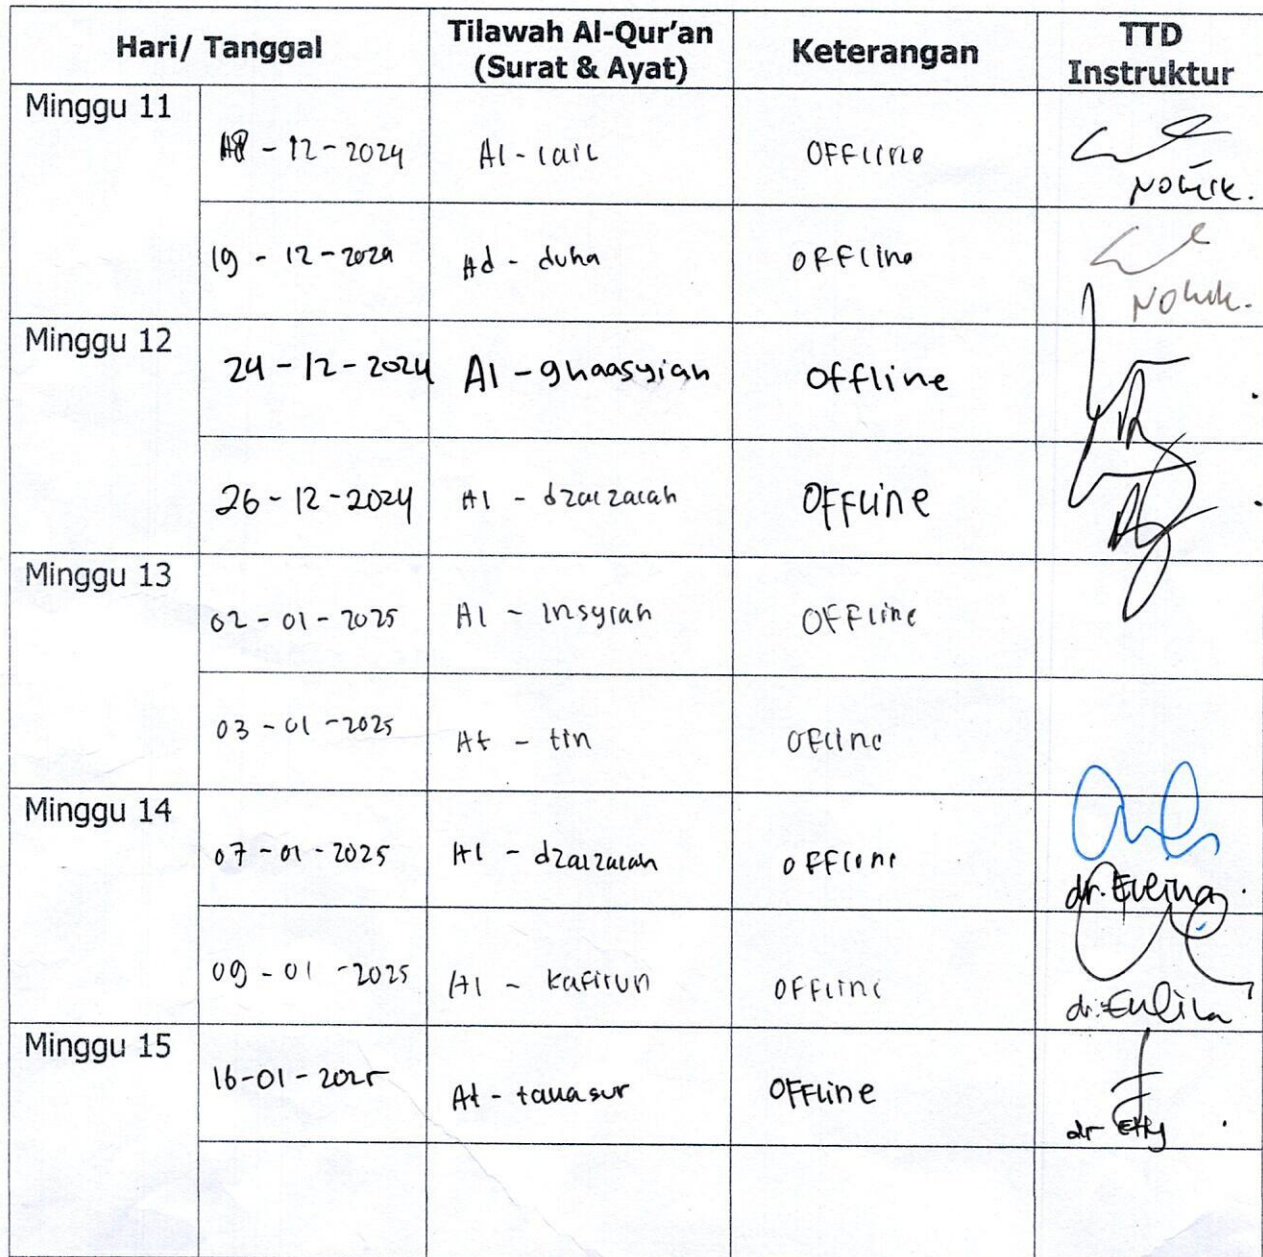 Hari/ Tanggal Tilawah Al-Qur'an (Surat & Ayat) Keterangan TTD Instruktur
Minggu 11
18 - 12 - 2024 Al - lail OFFline
19 - 12 - 2024 Ad - duha OFFline
Minggu 12
24 - 12 - 2024 Al - ghaasyiah Offline
26 - 12 - 2024 Al - dzalzalah OFFLine
Minggu 13
02 - 01 - 2025 Al - Insyiah OFFLine
03 - 01 - 2025 At - tin OFline
Minggu 14
07 - 01 - 2025 Al - dzalzalah OFFline
dr.
09 - 01 - 2025 Al - Kafirun OFFline
dr.
Minggu 15
16-01-2025 At - OFFLine
dr Etty